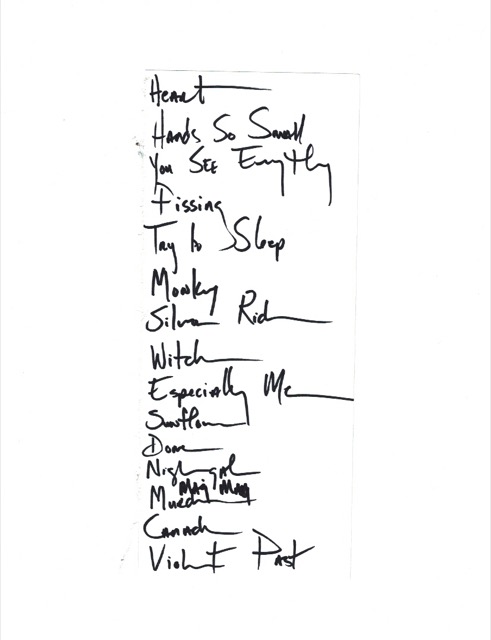 Heart
Hands So Small
You See Everything
Pissing
Try to Sleep
Monkey
Silver Rider
Witches
Especially Me
Sunflower
Done
Nightingale
Murderer
Canada
Violent Past